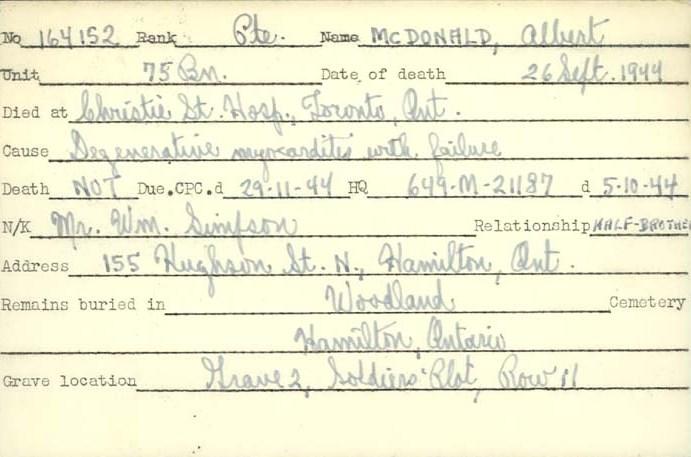 No 164152 Rank Pte. Name McDONALD, Albert
Unit 75 Bn. Date of death 26 Sept. 1944
Died at Christie St. Hosp., Toronto, Ont.
Cause Degenerative myocarditis with failure
Death NOT Due.CPC.d 29-11-44 HQ 649-M-21187 d 5-10-44
N/K Mr. Wm. Simpson Relationship HALF-BROTHER
Address 155 Hughson St. N., Hamilton, Ont.
Remains buried in Woodland Cemetery
Hamilton, Ontario
Grave location Grave 2, Soldiers' Plot, Row 11